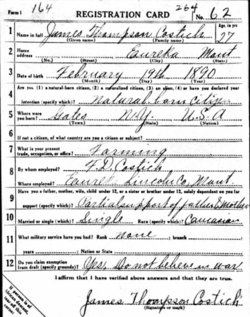 Form 1 164 REGISTRATION CARD 264 No. 62
1 Name in full James Thompson Costich Age, in yrs 27
(Given name) (Family name)
2 Home address Eureka Mont
3 Date of birth February 19th 1890
(Month) (Day) (Year)
4 Are you (1) a natural-born citizen, (2) a naturalized citizen, (3) an alien, (4) or have you declared your
intention (specify which)? Natural born Citizen
5 Where were you born? N.Y. U.S.A
6 If not a citizen, of what country are you a citizen or subject?
7 What is your present trade, occupation, or office? Farming
8 By whom employed? Costich
Where employed? Lincoln Co. Mont
9 Have you a father, mother, wife, child under 12, or a sister or brother under 12, solely dependent on you for
support (specify which)? Partial support of father & mother
10 Married or single (which)? Single Race (specify which)? Caucasian
11 What military service have you had? Rank none branch
years Nation or State
12 Do you claim exemption from draft (specify grounds)? Yes, Do not believe in war
I affirm that I have verified above answers and that they are true.
James Thompson Costich
(Signature or mark)